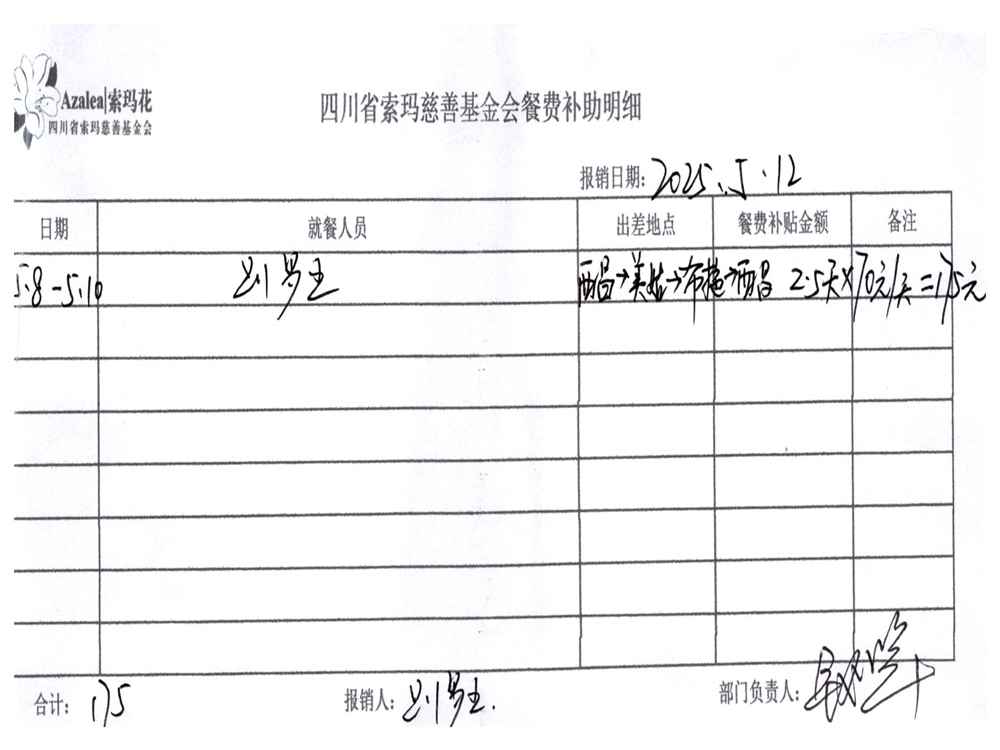 Azalea|索玛花
四川省索玛慈善基金会
四川省索玛慈善基金会餐费补助明细
报销日期: 2025.5.12
日期 就餐人员 出差地点 餐费补贴金额 备注
5.8-5.10 西昌→美姑→布拖→西昌 2.5天×70元/天=175元
合计: 175
报销人:
部门负责人: